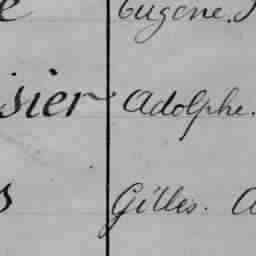 Eugène.
sier Adolphe.
s Gilles. A